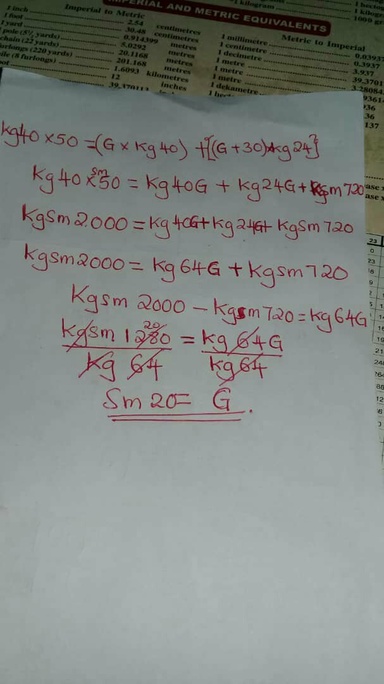 IMPERIAL AND METRIC EQUIVALENTS
Imperial to Metric
Metric to Imperial
1 inch 2.54 centimetres
1 foot 30.48 centimetres
1 yard 0.914399 metres
pole (5½ yards) 5.0292 metres
chain (22 yards) 20.1168 metres
furlongs (220 yards) 201.168 metres
mile (8 furlongs) 1.6093 kilometres
12 inches
39.370113
1 millimetre 0.03937
1 centimetre 0.3937
1 decimetre 3.937
1 metre 39.3701
1 metre 3.28084
1 metre
1 dekametre
kg40 × 50 = (G × kg40) + [(G + 30) × kg24]
kg40 × sm50 = kg40G + kg24G + kgsm720
kgsm2000 = kg40G + kg24G + kgsm720
kgsm2000 = kg64G + kgsm720
kgsm 2000 − kgsm720 = kg64G
kgsm 1280 20 = kg64G
kg 64 kg64
Sm20 = G.